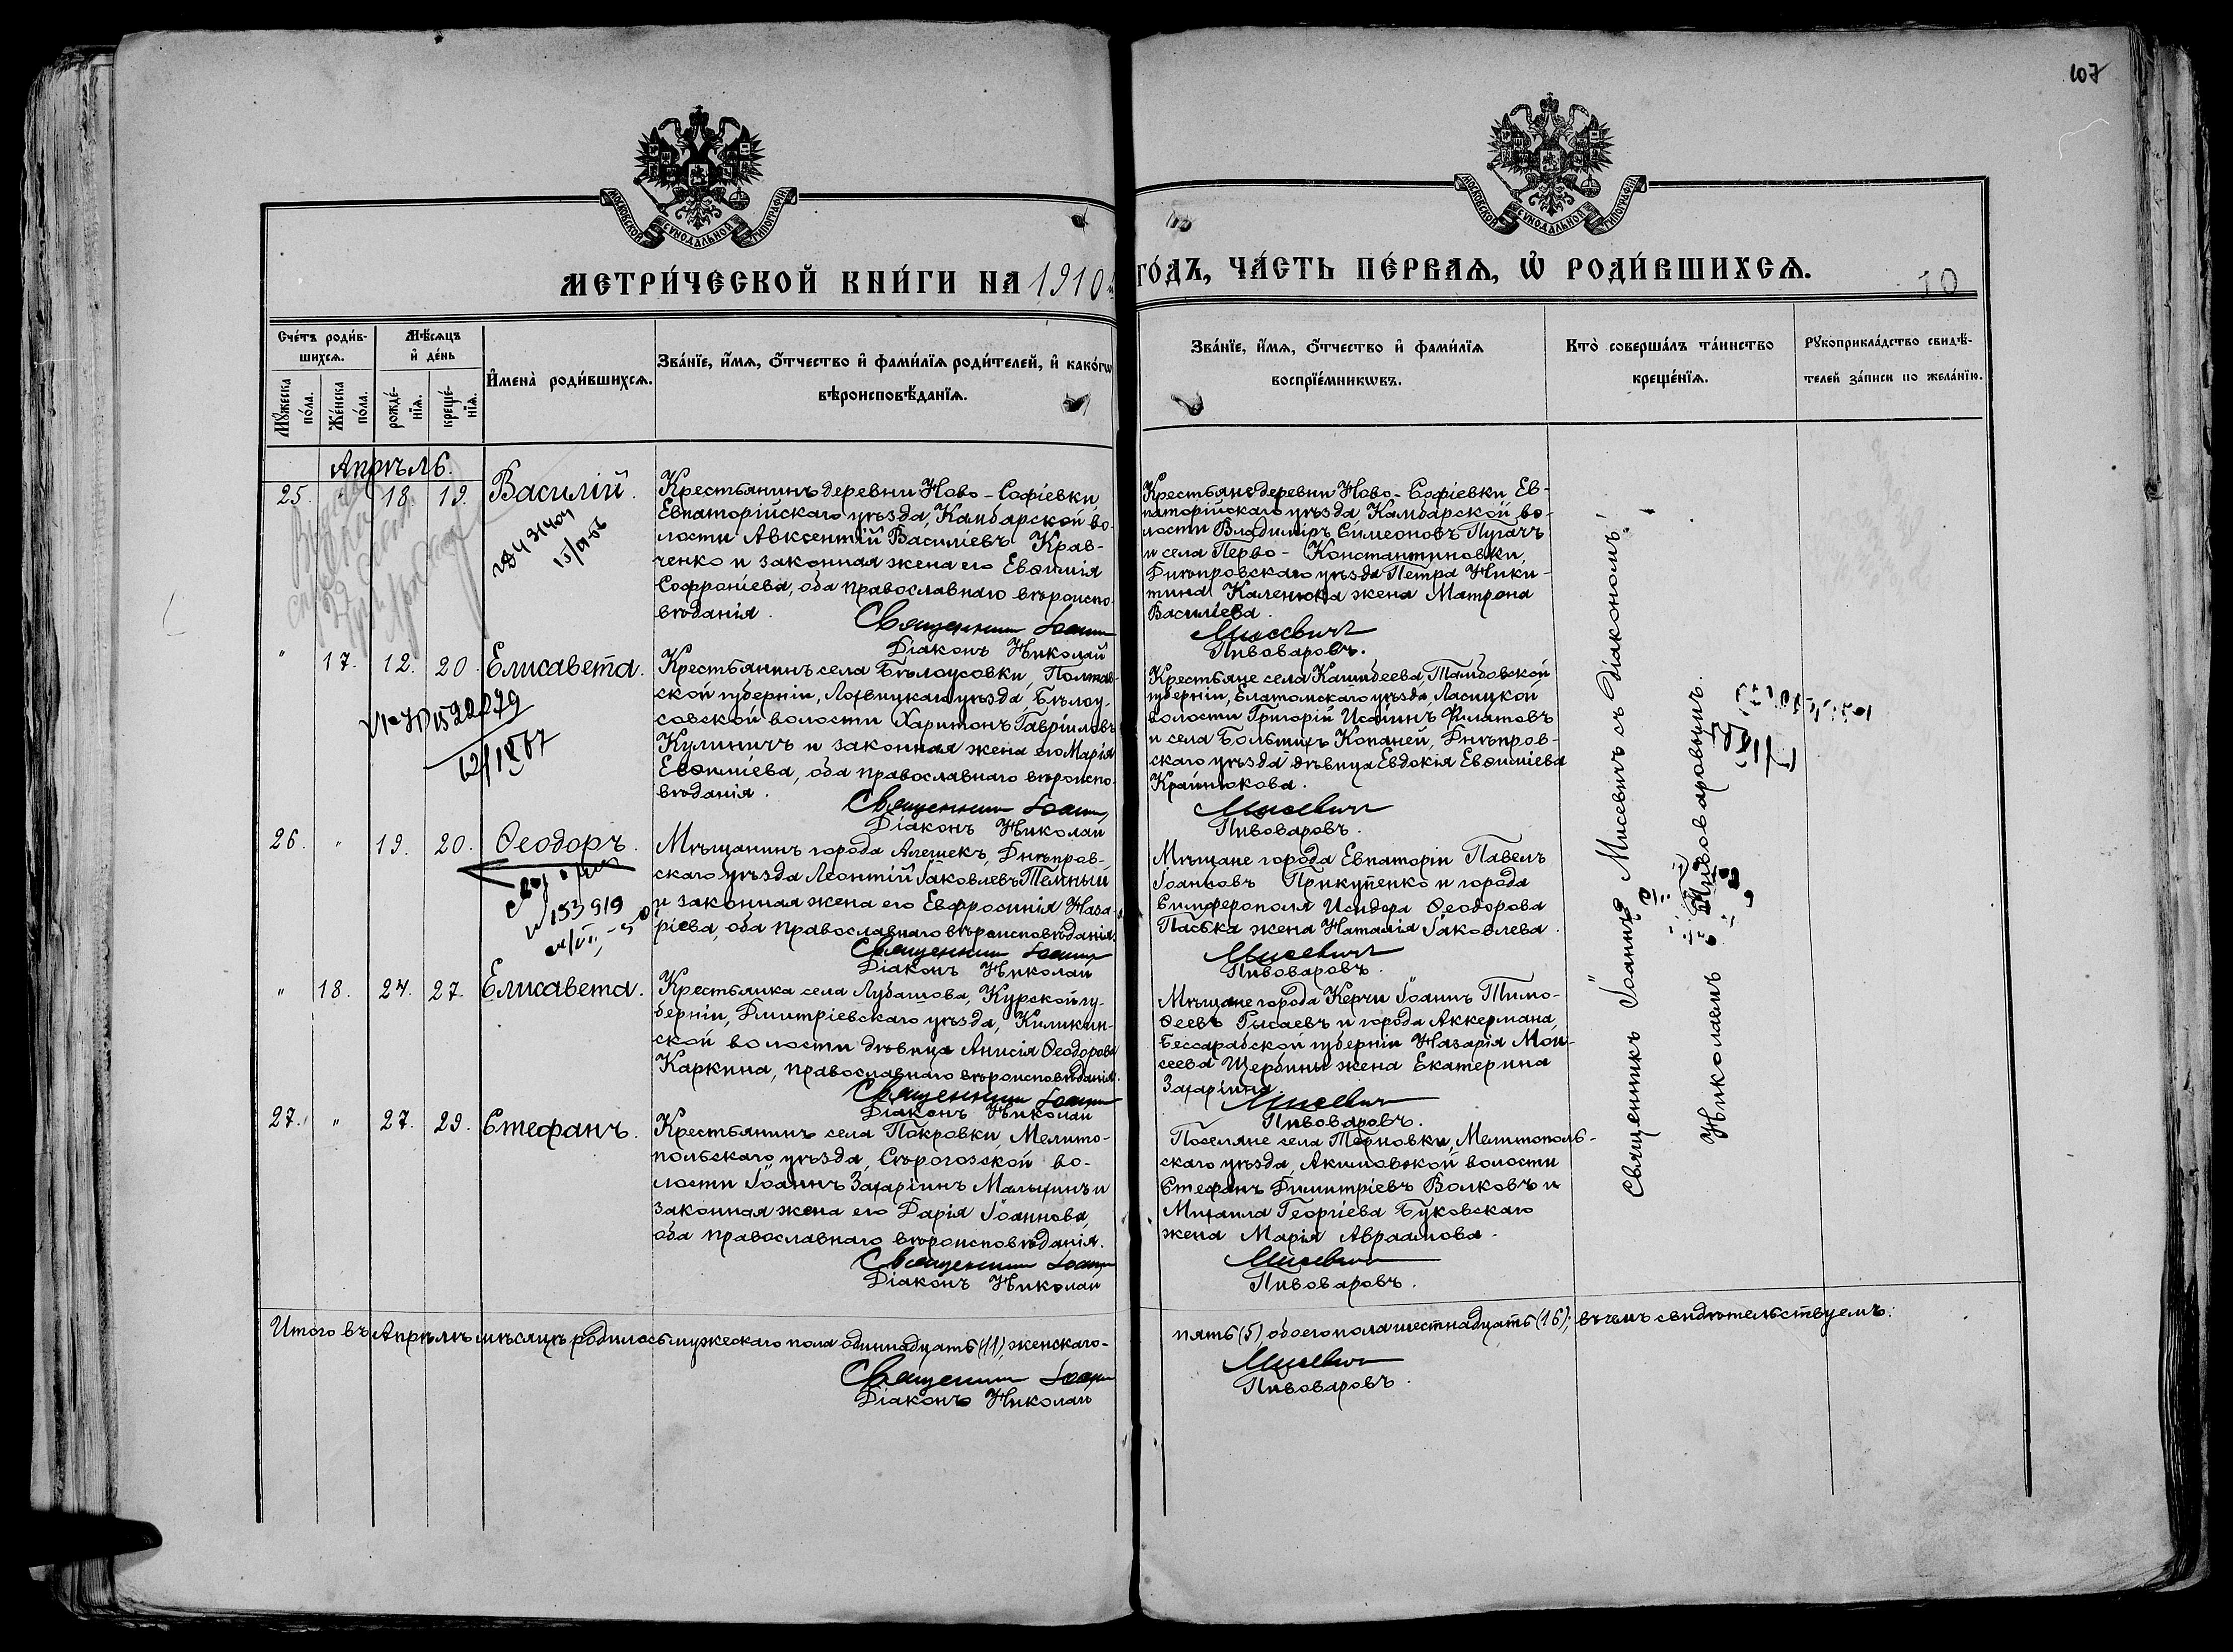 107
МОСКОВСКОЙ СѴНОДАЛЬНОЙ ТИПОГРАФІИ
МОСКОВСКОЙ СѴНОДАЛЬНОЙ ТИПОГРАФІИ
МЕТРИ́ЧЕСКОЙ КНИ́ГИ НА 1910 ГО́ДЪ, ЧА́СТЬ ПЕ́РВАѦ, Ѡ҆ РОДИ́ВШИХСѦ.
10
Сче́тъ роди́в-
шихсѧ.
Мꙋ́жеска по́ла.
Же́нска по́ла.
Мѣ́сѧцъ
и҆ де́нь
рожде́-
нїѧ.
креще́-
нїѧ.
И҆мена̀ роди́вшихсѧ.
Зва́нїе, и҆́мѧ, ѻ҆́тчество и҆ фами́лїѧ роди́телей, и҆ како́гѡ
вѣроисповѣ́данїѧ.
Зва́нїе, и҆́мѧ, ѻ҆́тчество и҆ фами́лїѧ
воспрїе́мникѡвъ.
Кто̀ соверша́лъ та́инство
креще́нїѧ.
Рꙋкоприкла́дство свидѣ́-
телей за́писи по жела́нїю.
Апрѣль.
25. " 18. 19. Василій.
Крестьянинъ деревни Ново-Софіевки,
Евпаторійскаго уѣзда, Камбарской во-
лости Авксентій Василіевъ Крав-
ченко и законная жена его Евѳимія
Софроніева, оба православнаго вѣроиспо-
вѣданія.
Священникъ Іоаннъ
Діаконъ Николай
Крестьяне деревни Ново-Софіевки, Ев-
паторійскаго уѣзда, Камбарской во-
лости Владиміръ Симеоновъ Пугачъ
и села Перво-Константиновки,
Днѣпровскаго уѣзда Петра Ники-
тина Каленюка жена Матрона
Василіева.
Мисевичъ
Пивоваровъ.
" 17. 12. 20. Елисавета.
Крестьянинъ села Бѣлоусовки, Полтав-
ской губерніи, Лохвицкаго уѣзда, Бѣлоу-
совской волости Харитонъ Гавріиловъ
Кулиничъ и законная жена его Марія
Евѳиміева, оба православнаго вѣроиспо-
вѣданія.
Священникъ Іоаннъ
Діаконъ Николай
Крестьяне села Кашибеева, Тамбовской
губерніи, Елатомскаго уѣзда, Ласицкой
волости Григорій Исаіинъ Филатовъ
и села Большихъ Копаней, Днѣпров-
скаго уѣзда дѣвица Евдокія Евѳиміева
Крайнюкова.
Мисевичъ
Пивоваровъ.
26. " 19. 20. Ѳеодоръ.
Мѣщанинъ города Алешекъ, Днѣпров-
скаго уѣзда Леонтій Іаковлевъ Темный
и законная жена его Евфросинія Наза-
ріева, оба православнаго вѣроисповѣданія.
Священникъ Іоаннъ
Діаконъ Николай
Мѣщане города Евпаторіи Павелъ
Іоанновъ Прикупенко и города
Симферополя Исидора Ѳеодорова
Паська жена Наталія Іаковлева.
Мисевичъ
Пивоваровъ.
" 18. 24. 27. Елисавета.
Крестьянка села Лубашова, Курской гу-
берніи, Дмитріевскаго уѣзда, Киликин-
ской волости дѣвица Анисія Ѳеодорова
Каркина, православнаго вѣроисповѣданія.
Священникъ Іоаннъ
Діаконъ Николай
Мѣщане города Керчи Іоаннъ Тимо-
ѳеевъ Гысаевъ и города Аккермана,
Бессарабской губерніи Назарія Мои-
сеева Щербины жена Екатерина
Захаріина.
Мисевичъ
Пивоваровъ.
27. " 27. 29. Стефанъ.
Крестьянинъ села Покровки, Мелито-
польскаго уѣзда, Сѣрогозской во-
лости Іоаннъ Захаріинъ Мальцинъ и
законная жена его Дарія Іоаннова,
оба православнаго вѣроисповѣданія.
Священникъ Іоаннъ
Діаконъ Николай
Поселяне села Терновки, Мелитополь-
скаго уѣзда, Акимовской волости
Стефанъ Димитріевъ Волковъ и
Михаила Георгіева Буковскаго
жена Марія Авраамова.
Мисевичъ
Пивоваровъ.
Священникъ Іоаннъ Мисевичъ съ діакономъ
Николаемъ Пивоваровымъ.
Итого въ Апрѣлѣ мѣсяцѣ родилось мужескаго пола одиннадцать (11), женскаго- пять (5), обоего пола шестнадцать (16); въ чемъ свидѣтельствуемъ:
Священникъ Іоаннъ Мисевичъ
Діаконъ Николай Пивоваровъ.